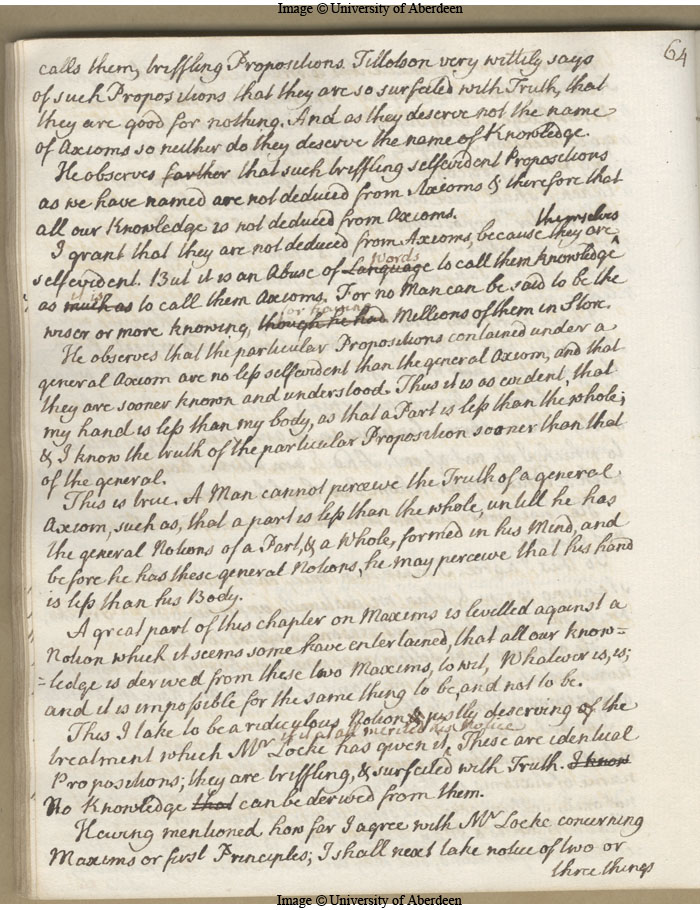 Image © University of Aberdeen
64
calls them, triffling Propositions. Tillotson very wittily says
of such Propositions that they are so surfeited with Truth, that
they are good for nothing. And as they deserve not the name
of Axioms so neither do they deserve the name of Knowledge.
He observes farther that such triffling selfevident Propositions
as we have named are not deduced from Axioms & therefore that
all our Knowledge is not deduced from Axioms.
themselves
I grant that they are not deduced from Axioms, because they are ^
words
selfevident. But it is an Abuse of Language to call them knowledge
it is
as much as to call them Axioms. For no Man can be said to be the
for having
wiser or more knowing, though he had Millions of them in Store.
He observes that the particular Propositions contained under a
general Axiom are no less selfevident than the general Axiom, and that
they are sooner known and understood. Thus it is as evident, that
my hand is less than my body, as that a Part is less than the whole;
& I know the truth of the particular Proposition sooner than that
of the general.
This is true. A Man cannot perceive the Truth of a general
Axiom, such as, that a part is less than the whole, untill he has
the general Notions of a Part, & a whole, formed in his Mind, and
before he has these general Notions, he may perceive that his hand
is less than his Body.
A great part of this chapter on Maxims is levelled against a
Notion which it seems some have entertained, that all our know=
=ledge is derived from these two Maxims, to wit, Whatever is, is;
and it is impossible for the same thing to be, and not to be.
This I take to be a ridiculous Notion & justly deserving of the
if it at all merited his notice
treatment which Mr Locke has given it, These are identical
Propositions; they are triffling, & surfeited with Truth. I know
No Knowledge that can be derived from them.
Having mentioned how far I agree with Mr Locke concerning
Maxims or first Principles; I shall next take notice of two or
three things
Image © University of Aberdeen